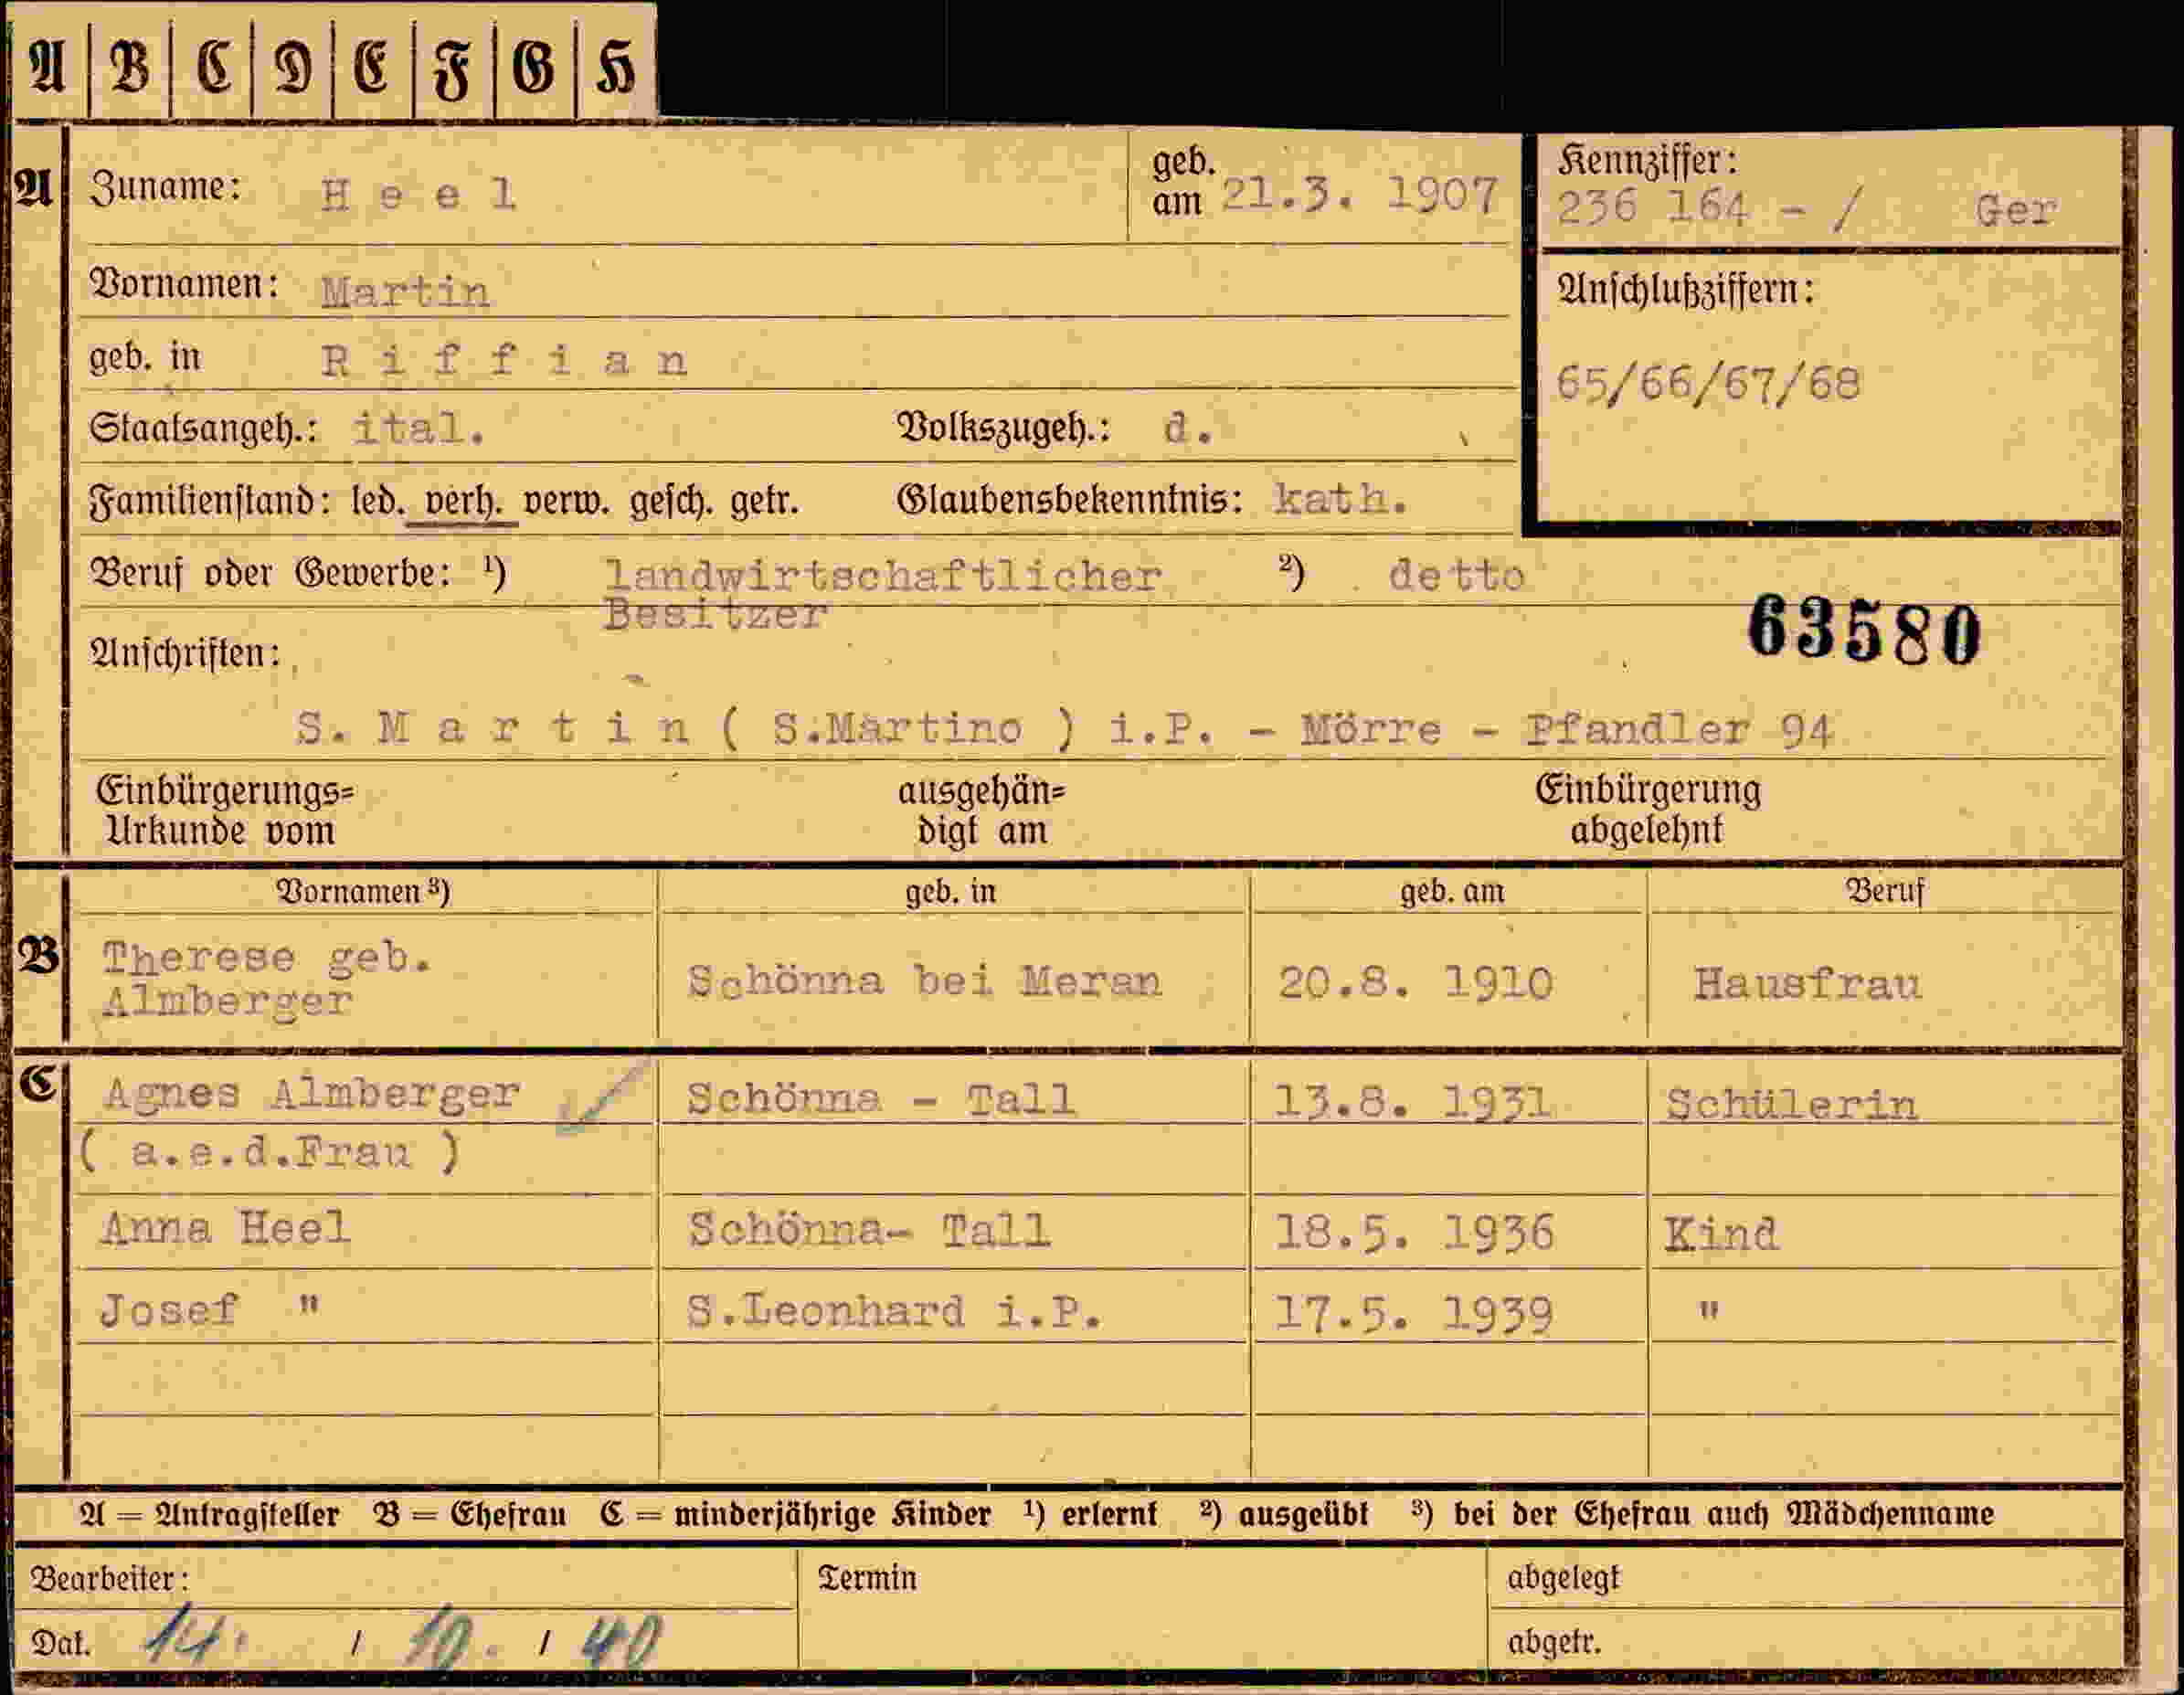 A B C D E F G H
A Zuname: H e e l geb. am 21.3. 1907
Kennziffer:
236 164 - / Ger
Vornamen: Martin
Anschlußziffern:
geb. in R i f f i a n
65/66/67/68
Staatsangeh.: ital. Volkszugeh.: d.
Familienstand: led. verh. verw. gesch. getr. Glaubensbekenntnis: kath.
Beruf oder Gewerbe: ¹) landwirtschaftlicher ²) detto
Besitzer
63580
Anschriften:
S. M a r t i n ( S.Martino ) i.P. - Mörre - Pfandler 94
Einbürgerungs= ausgehän= Einbürgerung
Urkunde vom digt am abgelehnt
Vornamen ³) geb. in geb. am Beruf
B Therese geb.
Almberger Schönna bei Meran 20.8. 1910 Hausfrau
C Agnes Almberger Schönna - Tall 13.8. 1931 Schülerin
( a.e.d.Frau )
Anna Heel Schönna- Tall 18.5. 1936 Kind
Josef " S.Leonhard i.P. 17.5. 1939 "
A = Antragsteller B = Ehefrau C = minderjährige Kinder ¹) erlernt ²) ausgeübt ³) bei der Ehefrau auch Mädchenname
Bearbeiter: Termin abgelegt
Dat. 14. / 10. / 40 abgetr.